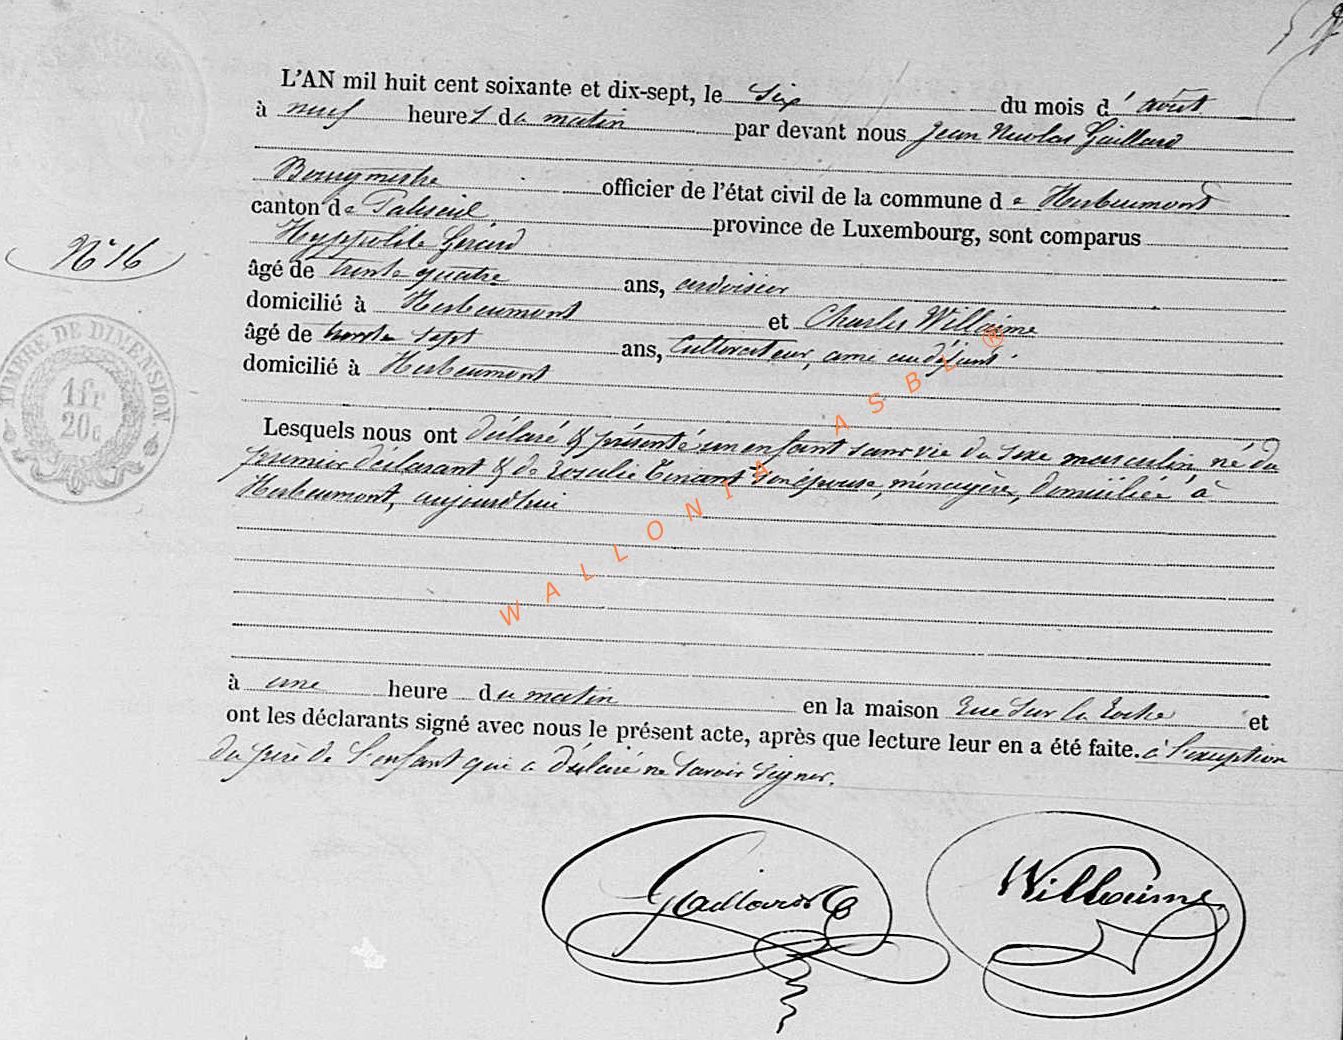 L'AN mil huit cent soixante et dix-sept, le six du mois d'août
à neuf heures du matin par devant nous Jean Nicolas Gaillard
Bourgmestre officier de l'état civil de la commune de Herbeumont
canton de Paliseul province de Luxembourg, sont comparus
Hyppolite Gérard
N° 16
âgé de trente quatre ans, ardoisier
domicilié à Herbeumont et Charles Willaime
âgé de trente sept ans, Cultivateur, ami au défunt
domicilié à Herbeumont
TIMBRE DE DIMENSION
1fr
20c
Lesquels nous ont déclaré & présenté un enfant sans vie du sexe masculin, né du
premier déclarant & de Rosalie son épouse, ménagère, domiciliée à
Herbeumont, aujourd'hui
WALLONIA ASBL ®
à une heure du matin en la maison Rue sur la Roche et
ont les déclarants signé avec nous le présent acte, après que lecture leur en a été faite. à l'exception
du père de l'enfant qui a déclaré ne savoir signer.
Gaillard
Willaime